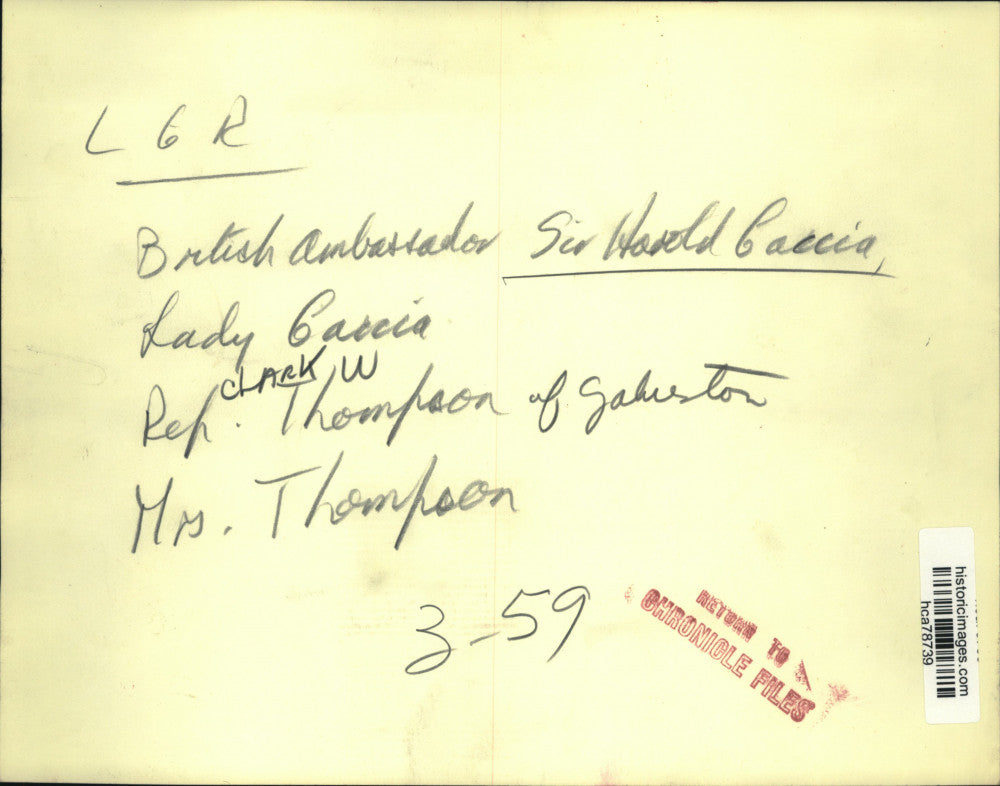 L G R
British Ambassador Sir Harold Caccia,
Lady Caccia
CLARK W
Rep. Thompson of Galveston
Mrs. Thompson
3-59
RETURN TO
CHRONICLE FILES
historicimages.com
hca78739